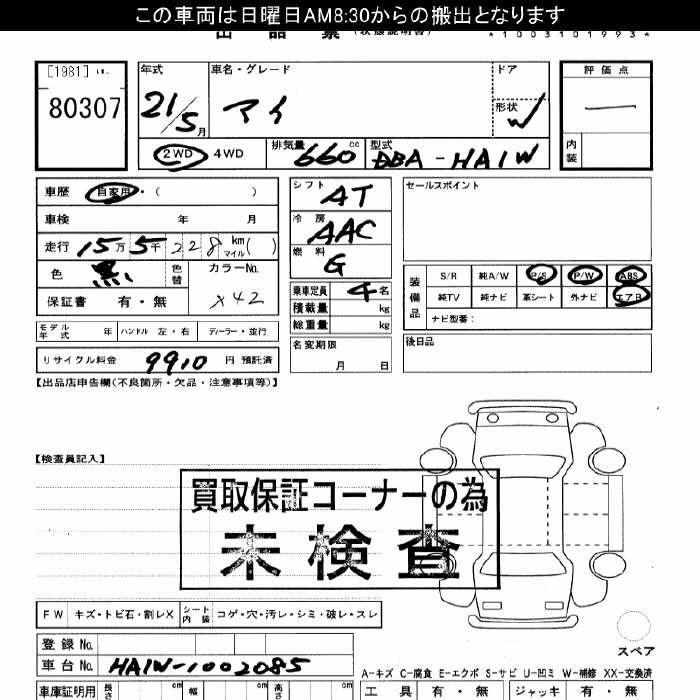 この車両は日曜日AM8:30からの搬出となります
*1003101993*
[1981]
80307
年式 車名・グレード ドア 評価点
21/5月 マイ 形状 W ―
2WD 4WD 排気量 660cc 型式 DBA-HA1W 内装
車歴 自家用・( ) シフト AT セールスポイント
車検 年 月 冷房 AAC
走行 15万5千228km マイル( ) 燃料 G
色 黒 色替 カラーNo. X42 乗車定員 4名
装備品 S/R 純A/W P/S P/W ABS
保証書 有・無 積載量 kg 純TV 純ナビ 革シート 外ナビ エアB
総重量 kg ナビ型番:
モデル年式 年 ハンドル 左・右 ディーラー・並行 名変期限 月 日 後日品
リサイクル料金 9910 円 預託済
【出品店申告欄(不良箇所・欠品・注意事項等)】
【検査員記入】
買取保証コーナーの為
未検査
FW キズ・トビ石・割レX シート内装 コゲ・穴・汚レ・シミ・破レ・スレ
登録No. スペア
車台No. HA1W-1002085
A-キズ C-腐食 E-エクボ S-サビ U-凹ミ W-補修 XX-交換済
車庫証明用 長さ cm 幅 cm 高さ cm 工具 有・無 ジャッキ 有・無